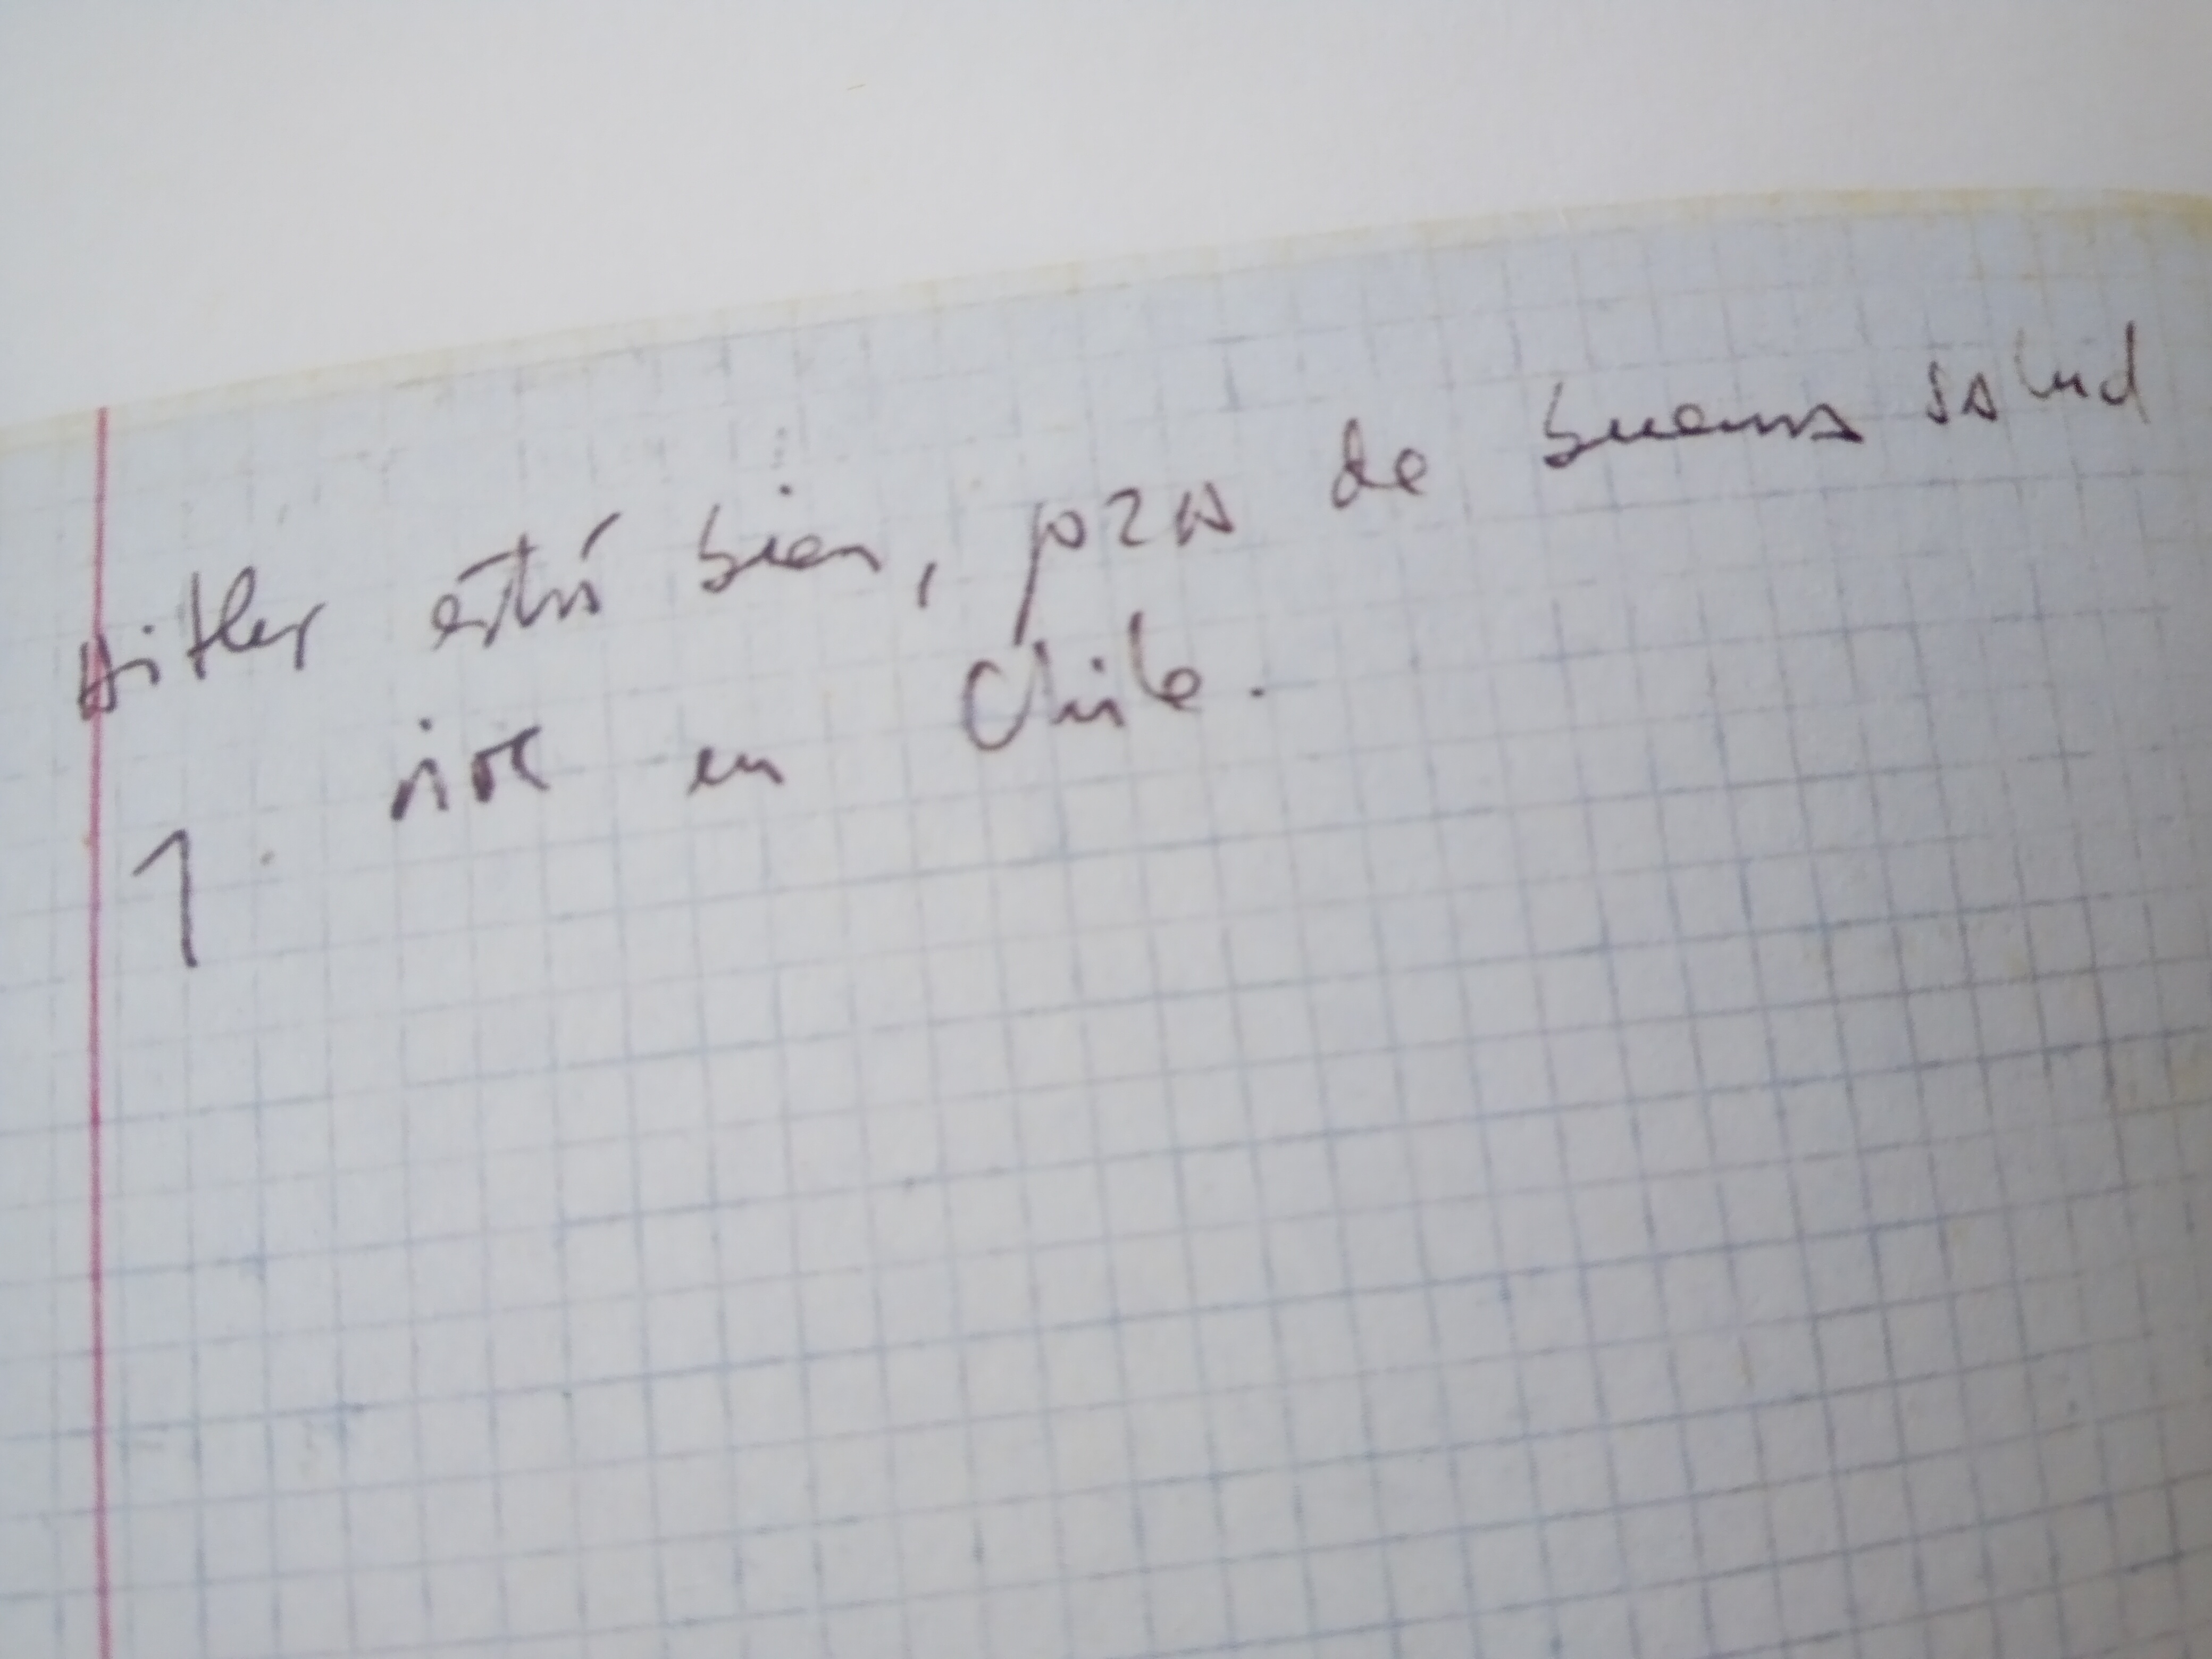 Hitler está bien, goza de buena salud
y vive en Chile.